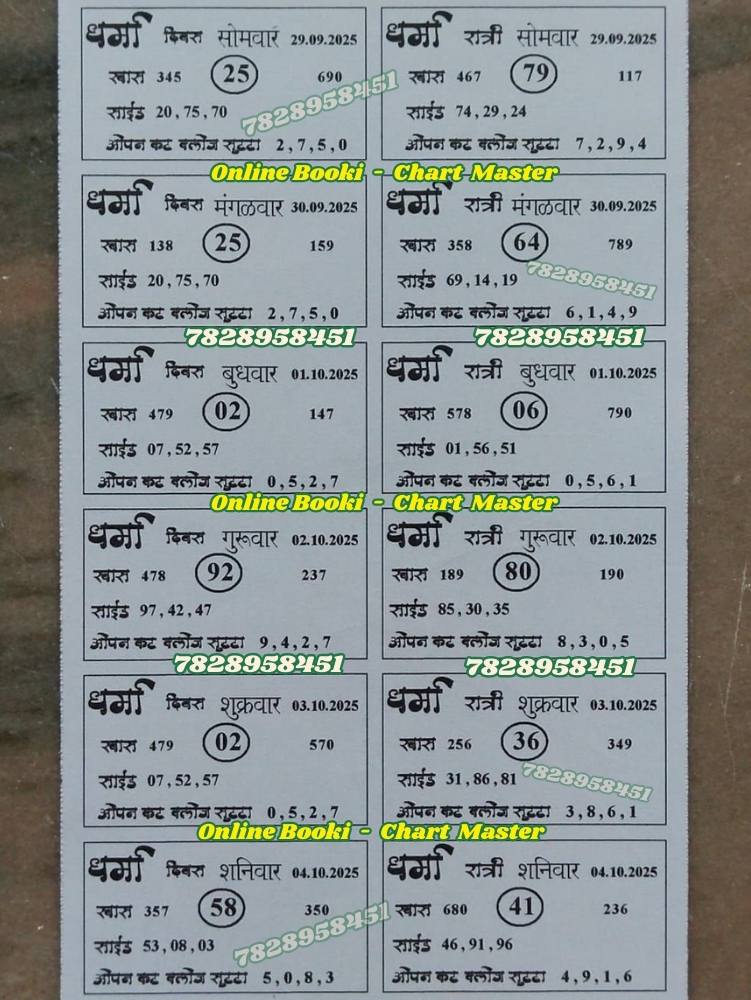 धर्मा दिवस सोमवार 29.09.2025
खास 345 25 690
साईड 20,75,70
ओपन कट क्लोज सुट्टा 2,7,5,0
7828958451
धर्मा रात्री सोमवार 29.09.2025
खास 467 79 117
साईड 74,29,24
ओपन कट क्लोज सुट्टा 7,2,9,4
Online Booki - Chart Master
धर्मा दिवस मंगळवार 30.09.2025
खास 138 25 159
साईड 20,75,70
ओपन कट क्लोज सुट्टा 2,7,5,0
7828958451
धर्मा रात्री मंगळवार 30.09.2025
खास 358 64 789
साईड 69,14,19
7828958451
ओपन कट क्लोज सुट्टा 6,1,4,9
7828958451
धर्मा दिवस बुधवार 01.10.2025
खास 479 02 147
साईड 07,52,57
ओपन कट क्लोज सुट्टा 0,5,2,7
धर्मा रात्री बुधवार 01.10.2025
खास 578 06 790
साईड 01,56,51
ओपन कट क्लोज सुट्टा 0,5,6,1
Online Booki - Chart Master
धर्मा दिवस गुरूवार 02.10.2025
खास 478 92 237
साईड 97,42,47
ओपन कट क्लोज सुट्टा 9,4,2,7
7828958451
धर्मा रात्री गुरूवार 02.10.2025
खास 189 80 190
साईड 85,30,35
ओपन कट क्लोज सुट्टा 8,3,0,5
7828958451
धर्मा दिवस शुक्रवार 03.10.2025
खास 479 02 570
साईड 07,52,57
ओपन कट क्लोज सुट्टा 0,5,2,7
धर्मा रात्री शुक्रवार 03.10.2025
खास 256 36 349
साईड 31,86,81
7828958451
ओपन कट क्लोज सुट्टा 3,8,6,1
Online Booki - Chart Master
धर्मा दिवस शनिवार 04.10.2025
खास 357 58 350
साईड 53,08,03
7828958451
ओपन कट क्लोज सुट्टा 5,0,8,3
धर्मा रात्री शनिवार 04.10.2025
खास 680 41 236
साईड 46,91,96
ओपन कट क्लोज सुट्टा 4,9,1,6